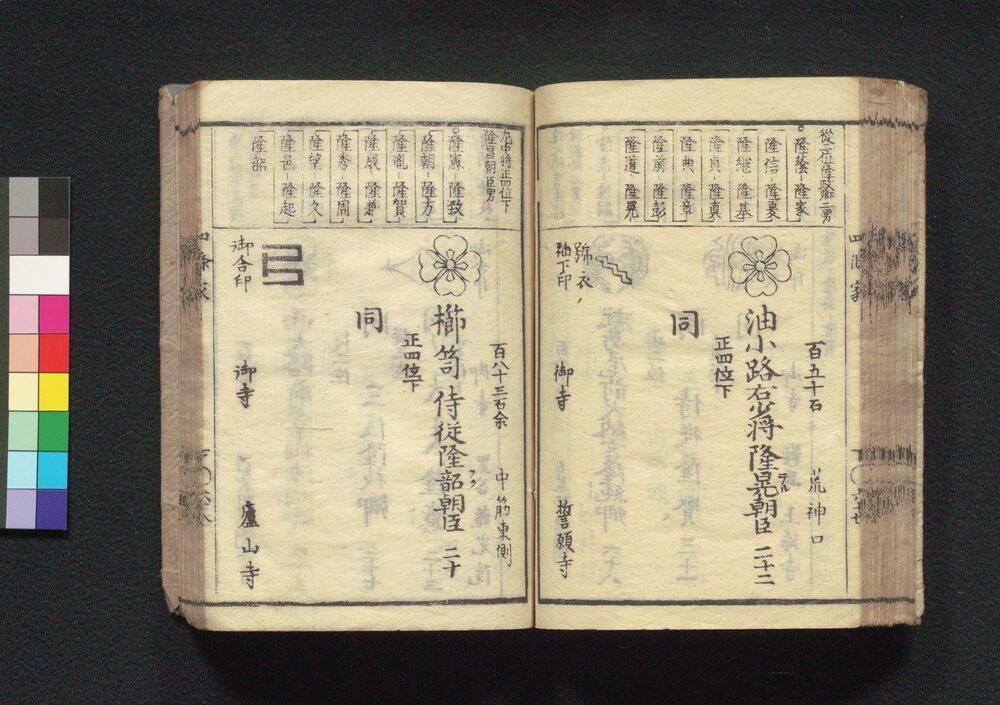 隆蔭 隆家
隆信 隆夏
隆継 隆基
隆貞 隆真
隆典 隆章
隆前 隆彭
隆道 隆晃
百五十石
荒神口
油小路右少将隆晃朝臣
二十二
正四位下
同
御寺
誓願寺
袖下印
左中将正四位下
隆昌朝臣男
隆憲 隆致
隆朝 隆方
隆胤 隆賀
隆成 隆兼
隆秀 隆周
隆望 隆久
隆邑 隆起
隆韶
百八十三石余
中筋東側
櫛笥侍従隆韶朝臣
二十
正四位下
同
御合印
御寺
廬山寺